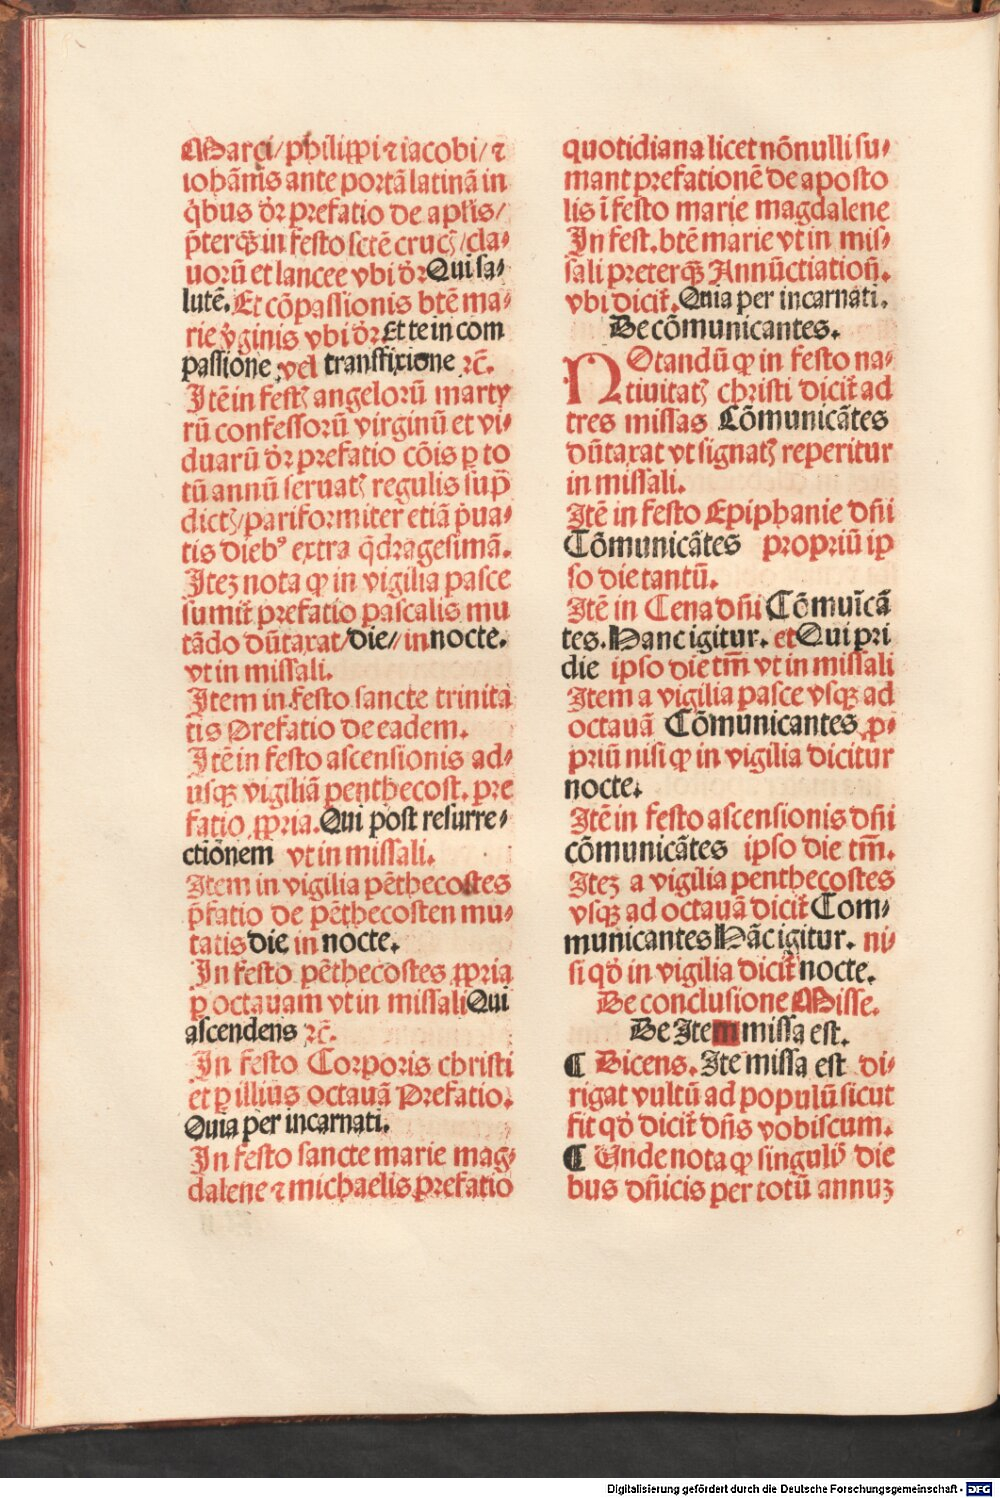 Marci/philippi ⁊ iacobi/⁊
iohānis ante portā latinā in
q̇bus dr̄ prefatio de apl̄is/
p̄terq̄ꝫ in festo sctē crucꝭ/cla⸗
uorū et lancee vbi dr̄ Qui sa⸗
lutē. Et cōpassionis btē ma⸗
rie v̇ginis vbi dr̄ Et te in com
passione vel transfixione ⁊c̄.
Itē in festꝭ angelorū marty
rū confessorū virginū et vi⸗
duarū dr̄ prefatio cōis ꝑ to
tū annū seruatꝭ regulis sup̄
dictꝭ/pariformiter etiā ṗua⸗
tis diebꝰ extra q̄dragesimā.
Iteꝫ nota ꝙ in vigilia pasce
sumit̄ prefatio pascalis mu
tādo dūtaxat/die//in nocte.
vt in missali.
Item in festo sancte trinita
tis Prefatio de eadem.
Itē in festo ascensionis ad⸗
usqꝫ vigiliā penthecost. pre
fatio ꝓpria. Qui post resurre⸗
ctiōnem vt in missali.
Item in vigilia pēthecostes
p̄fatio de pēthecosten mu⸗
tatis die in nocte.
In festo pēthecostes ꝓpria
ꝑ octauam vt in missali Qui
ascendens ⁊c̄.
In festo Corporis christi
et ꝑ illius octauā Prefatio.
Quia per incarnati.
In festo sancte marie mag⸗
dalene ⁊ michaelis prefatio
quotidiana licet nōnulli su⸗
mant prefationē de aposto
lis ī festo marie magdalene
In fest. btē marie vt in mis⸗
sali preterq̄ꝫ Annūctiation̄.
vbi dicit̄. Quia per incarnati.
De cōmunicantes.
NOtandū ꝙ in festo na⸗
tiuitatꝭ christi dicit̄ ad
tres missas Cōmunicātes
dūtaxat vt signatꝭ reperitur
in missali.
Itē in festo Epiphanie dn̄i
Cōmunicātes propriū ip
so die tantū.
Itē in Cena dn̄i Cōmuīcā
tes. Hanc igitur. et Qui pri
die ipso die tm̄ vt in missali
Item a vigilia pasce vsqꝫ ad
octauā Cōmunicantes ꝓ⸗
priū nisi ꝙ in vigilia dicitur
nocte.
Itē in festo ascensionis dn̄i
cōmunicātes ipso die tm̄.
Iteꝫ a vigilia penthecostes
vsqꝫ ad octauā dicit̄ Com⸗
municantes Hāc igitur. ni⸗
si qd̄ in vigilia dicit̄ nocte.
De conclusione Misse.
De Item missa est.
¶ Dicens. Ite missa est di⸗
rigat vultū ad populū sicut
fit qd̄ dicit̄ dn̄s vobiscum.
¶ Unde nota ꝙ singulꝭ die
bus dn̄icis per totū annuꝫ
Digitalisierung gefördert durch die Deutsche Forschungsgemeinschaft - DFG